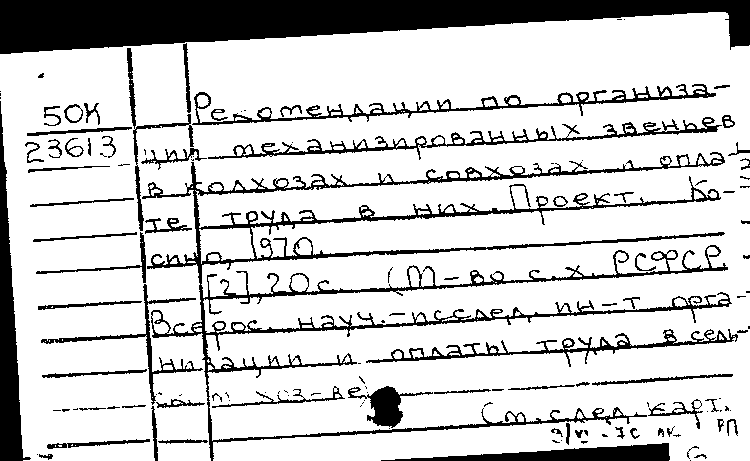 50К Рекомендации по организа-
23613 ции механизированных звеньев
в колхозах и совхозах и опла-
те труда в них. Проект. Ко-
сино, 1970.
[2], 20 с. (М-во с.х. РСФСР.
Всерос. науч.-исслед. ин-т орга-
низации и оплаты труда в сель-
ск. хоз-ве)
См. след. карт.
РП